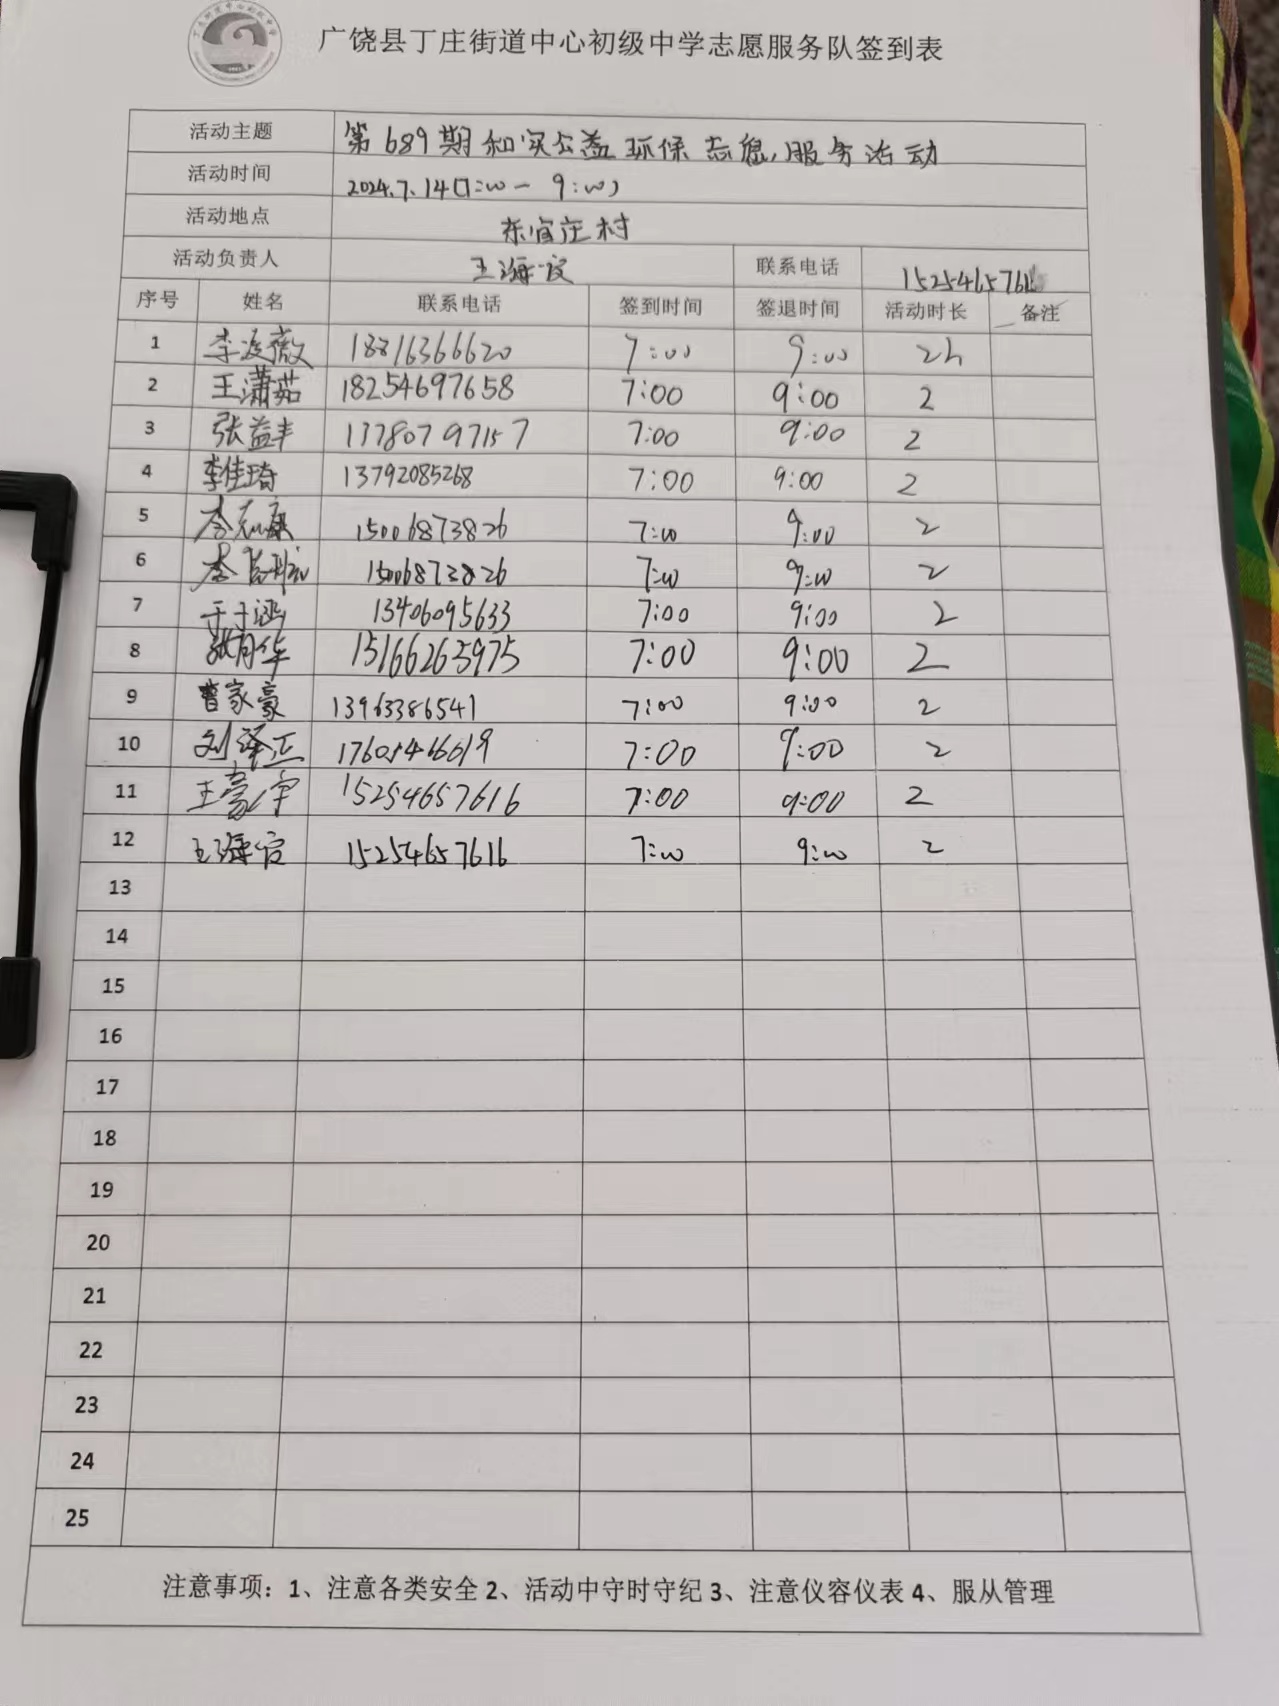 广饶县丁庄街道中心初级中学志愿服务队签到表
活动主题 第689期和实公益环保志愿服务活动
活动时间 2024.7.14(7:00-9:00)
活动地点 东官庄村
活动负责人 王海 联系电话 1525465761
序号 姓名 联系电话 签到时间 签退时间 活动时长 备注
1 李凌薇 18816366620 7:00 9:00 2h
2 王潇茹 18254697658 7:00 9:00 2
3 张益丰 13780797157 7:00 9:00 2
4 李佳琦 13792085268 7:00 9:00 2
5 李志康 15006873826 7:00 9:00 2
6 李 15006873826 7:00 9:00 2
7 于子涵 13406095633 7:00 9:00 2
8 张月华 15166265975 7:00 9:00 2
9 曹家豪 13963386541 7:00 9:00 2
10 刘泽正 17605466619 7:00 9:00 2
11 王豪宇 15254657616 7:00 9:00 2
12 王海 15254657616 7:00 9:00 2
13
14
15
16
17
18
19
20
21
22
23
24
25
注意事项：1、注意各类安全 2、活动中守时守纪 3、注意仪容仪表 4、服从管理